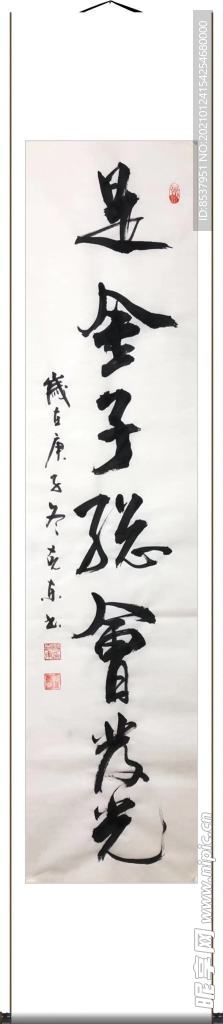 是金子總會發光
歲在庚子冬克東書
ID:8537951 NO:20210124154254680000
昵享网 www.nipic.cn